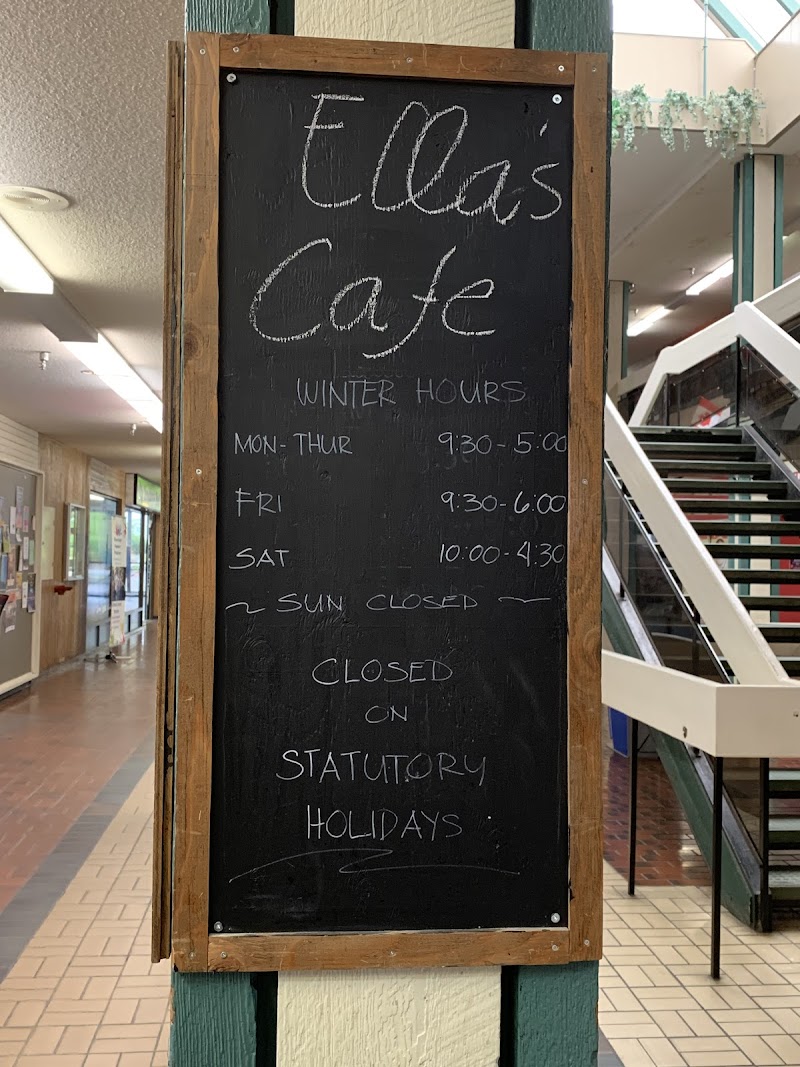 Ella's
Cafe
WINTER HOURS
MON-THUR 9:30-5:00
FRI 9:30-6:00
SAT 10:00-4:30
~ SUN CLOSED ~
CLOSED
ON
STATUTORY
HOLIDAYS